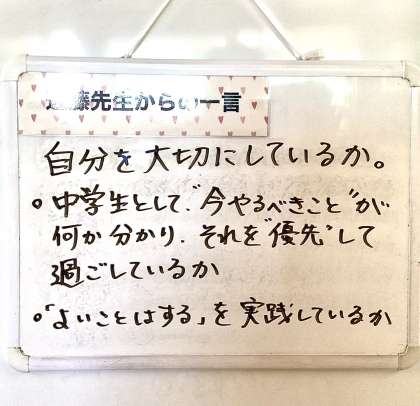 遠藤先生からの一言
自分を大切にしているか。
。中学生として、“今やるべきこと”が
何か分かり、それを“優先”して
過ごしているか
。「よいことはする」を実践しているか